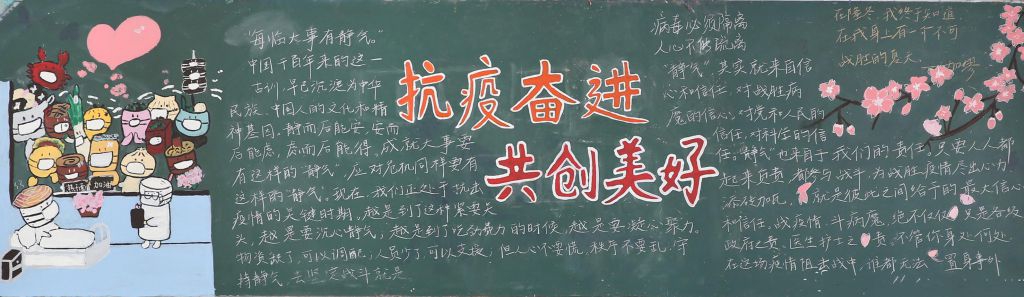 “每临大事有静气。”
中国千百年来的这一
古训,早已沉淀为中华
民族、中国人的文化和精
神基因。静而后能安,安而
后能虑,虑而后能得。成就大事要
有这样的“静气”。应对危机同样要有
这样的“静气”。现在,我们正处于抗击
疫情的关键时期。越是到了这种紧要关
头,越是要沉心静气,越是到了吃劲费力的时候,越是要凝心聚力。
物资缺了,可以调配,人员少了,可以支援,但人心不要慌,秩序不要乱,守
持静气,去坚定战斗就是
抗疫奋进
共创美好
病毒必须隔离
人心不能疏离
“静气”,其实就来自信
心和信任,对战胜病
度的信心,对党和人民的
信任,对科任的信
任。“静气”也来自于我们的责任,只要人人都
起来负责,都参与战斗,为战胜疫情尽出心力,
添砖加瓦,就是彼此之间给予的最大信心
和信任,战疫情,斗病魔,绝不仅仅只是各级
政府之责,医生护士之责。不管你身处何处
在这场疫情阻击战中,谁都无法置身事外
在隆冬,我终于知道
在我身上有一个不可
战胜的夏天。
——加缪
加油